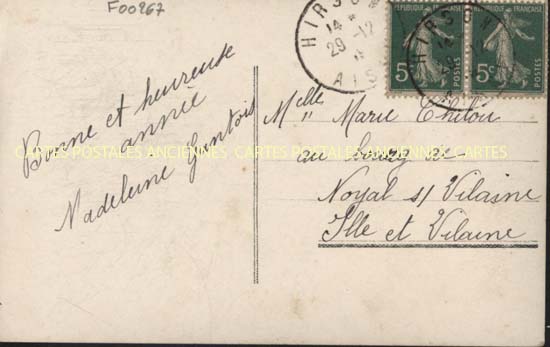 F00967
HIRSON
14 *
29 -12
AIS
REPUBLIQUE FRANÇAISE
5c
POSTES
REPUBLIQUE FRANÇAISE
5c
POSTES
HIRSON
Bonne et heureuse
année
Madeleine Gantois
Melle Marie Thilou
au bourg de
Noyal s/ Vilaine
Ille et Vilaine
CARTES POSTALES ANCIENNES CARTES POSTALES ANCIENNES CARTES